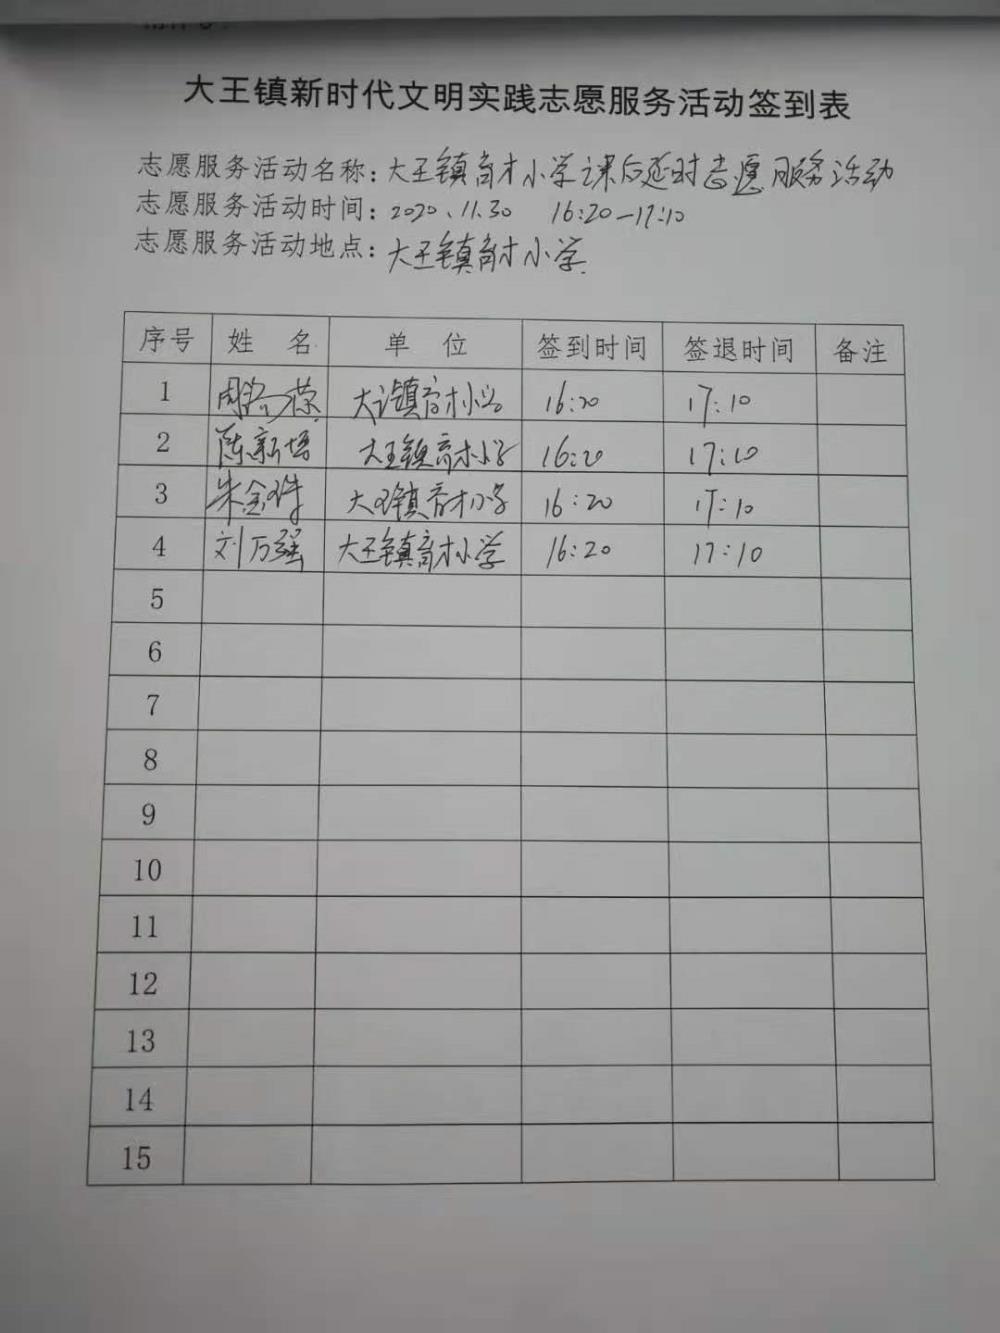 大王镇新时代文明实践志愿服务活动签到表
志愿服务活动名称：大王镇育才小学课后延时志愿服务活动
志愿服务活动时间：2020、11.30 16:20—17:10
志愿服务活动地点：大王镇育才小学
序号 姓 名 单 位 签到时间 签退时间 备注
1 大王镇育才小学 16:20 17:10
2 陈新 大王镇育才小学 16:20 17:10
3 朱金 大王镇育才小学 16:20 17:10
4 刘万强 大王镇育才小学 16:20 17:10
5
6
7
8
9
10
11
12
13
14
15